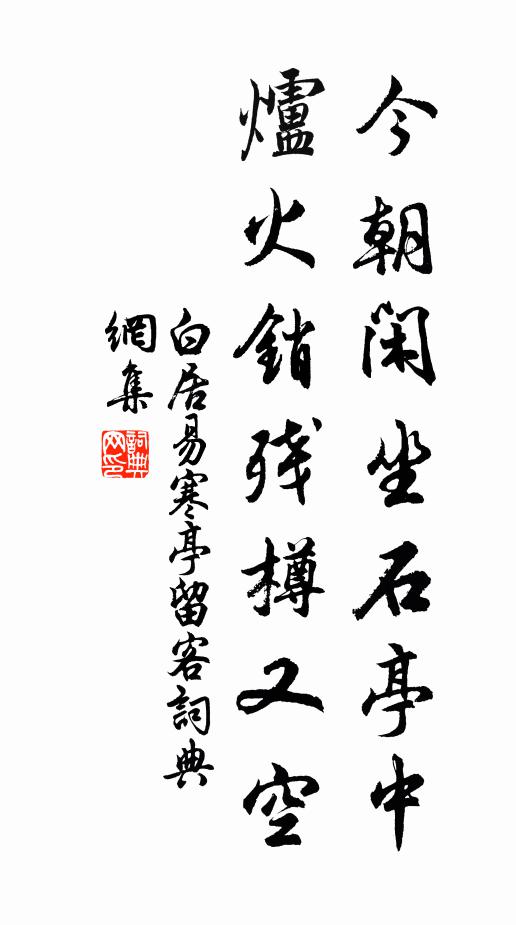 今朝閑坐石亭中
爐火銷殘樽又空
白居易寒亭留客詞典
網集
詞典
网印